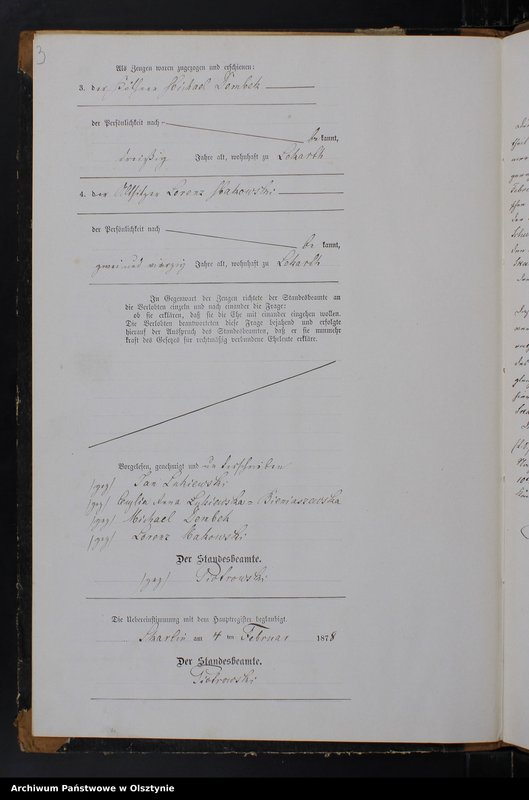 3
Als Zeugen waren zugezogen und erschienen:
3. der Michael Dombek
der Persönlichkeit nach
be kannt,
dreißig Jahre alt, wohnhaft zu
4. der Altsitzer Lorenz Makowski
der Persönlichkeit nach be kannt,
zweiundvierzig Jahre alt, wohnhaft zu
In Gegenwart der Zeugen richtete der Standesbeamte an
die Verlobten einzeln und nach einander die Frage:
ob sie erklären, daß sie die Ehe mit einander eingehen wollen.
Die Verlobten beantworteten diese Frage bejahend und erfolgte
hierauf der Ausspruch des Standesbeamten, daß er sie nunmehr
kraft des Gesetzes für rechtmäßig verbundene Eheleute erkläre.
Vorgelesen, genehmigt und unterschrieben
(gez) Jan
(gez) Anna
(gez) Michael Dombek
(gez) Lorenz Makowski
Der Standesbeamte.
(gez) Piotrowski
Die Uebereinstimmung mit dem Hauptregister beglaubigt.
am 4 ten Februar 1878
Der Standesbeamte.
Piotrowski
Archiwum Państwowe w Olsztynie